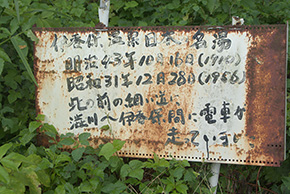 伊香保温泉日本の名湯
明治43年10月16日(1910)
昭和31年12月28日(1956)
此の前の細い道に
渋川へ伊香保間に電車が
走っています